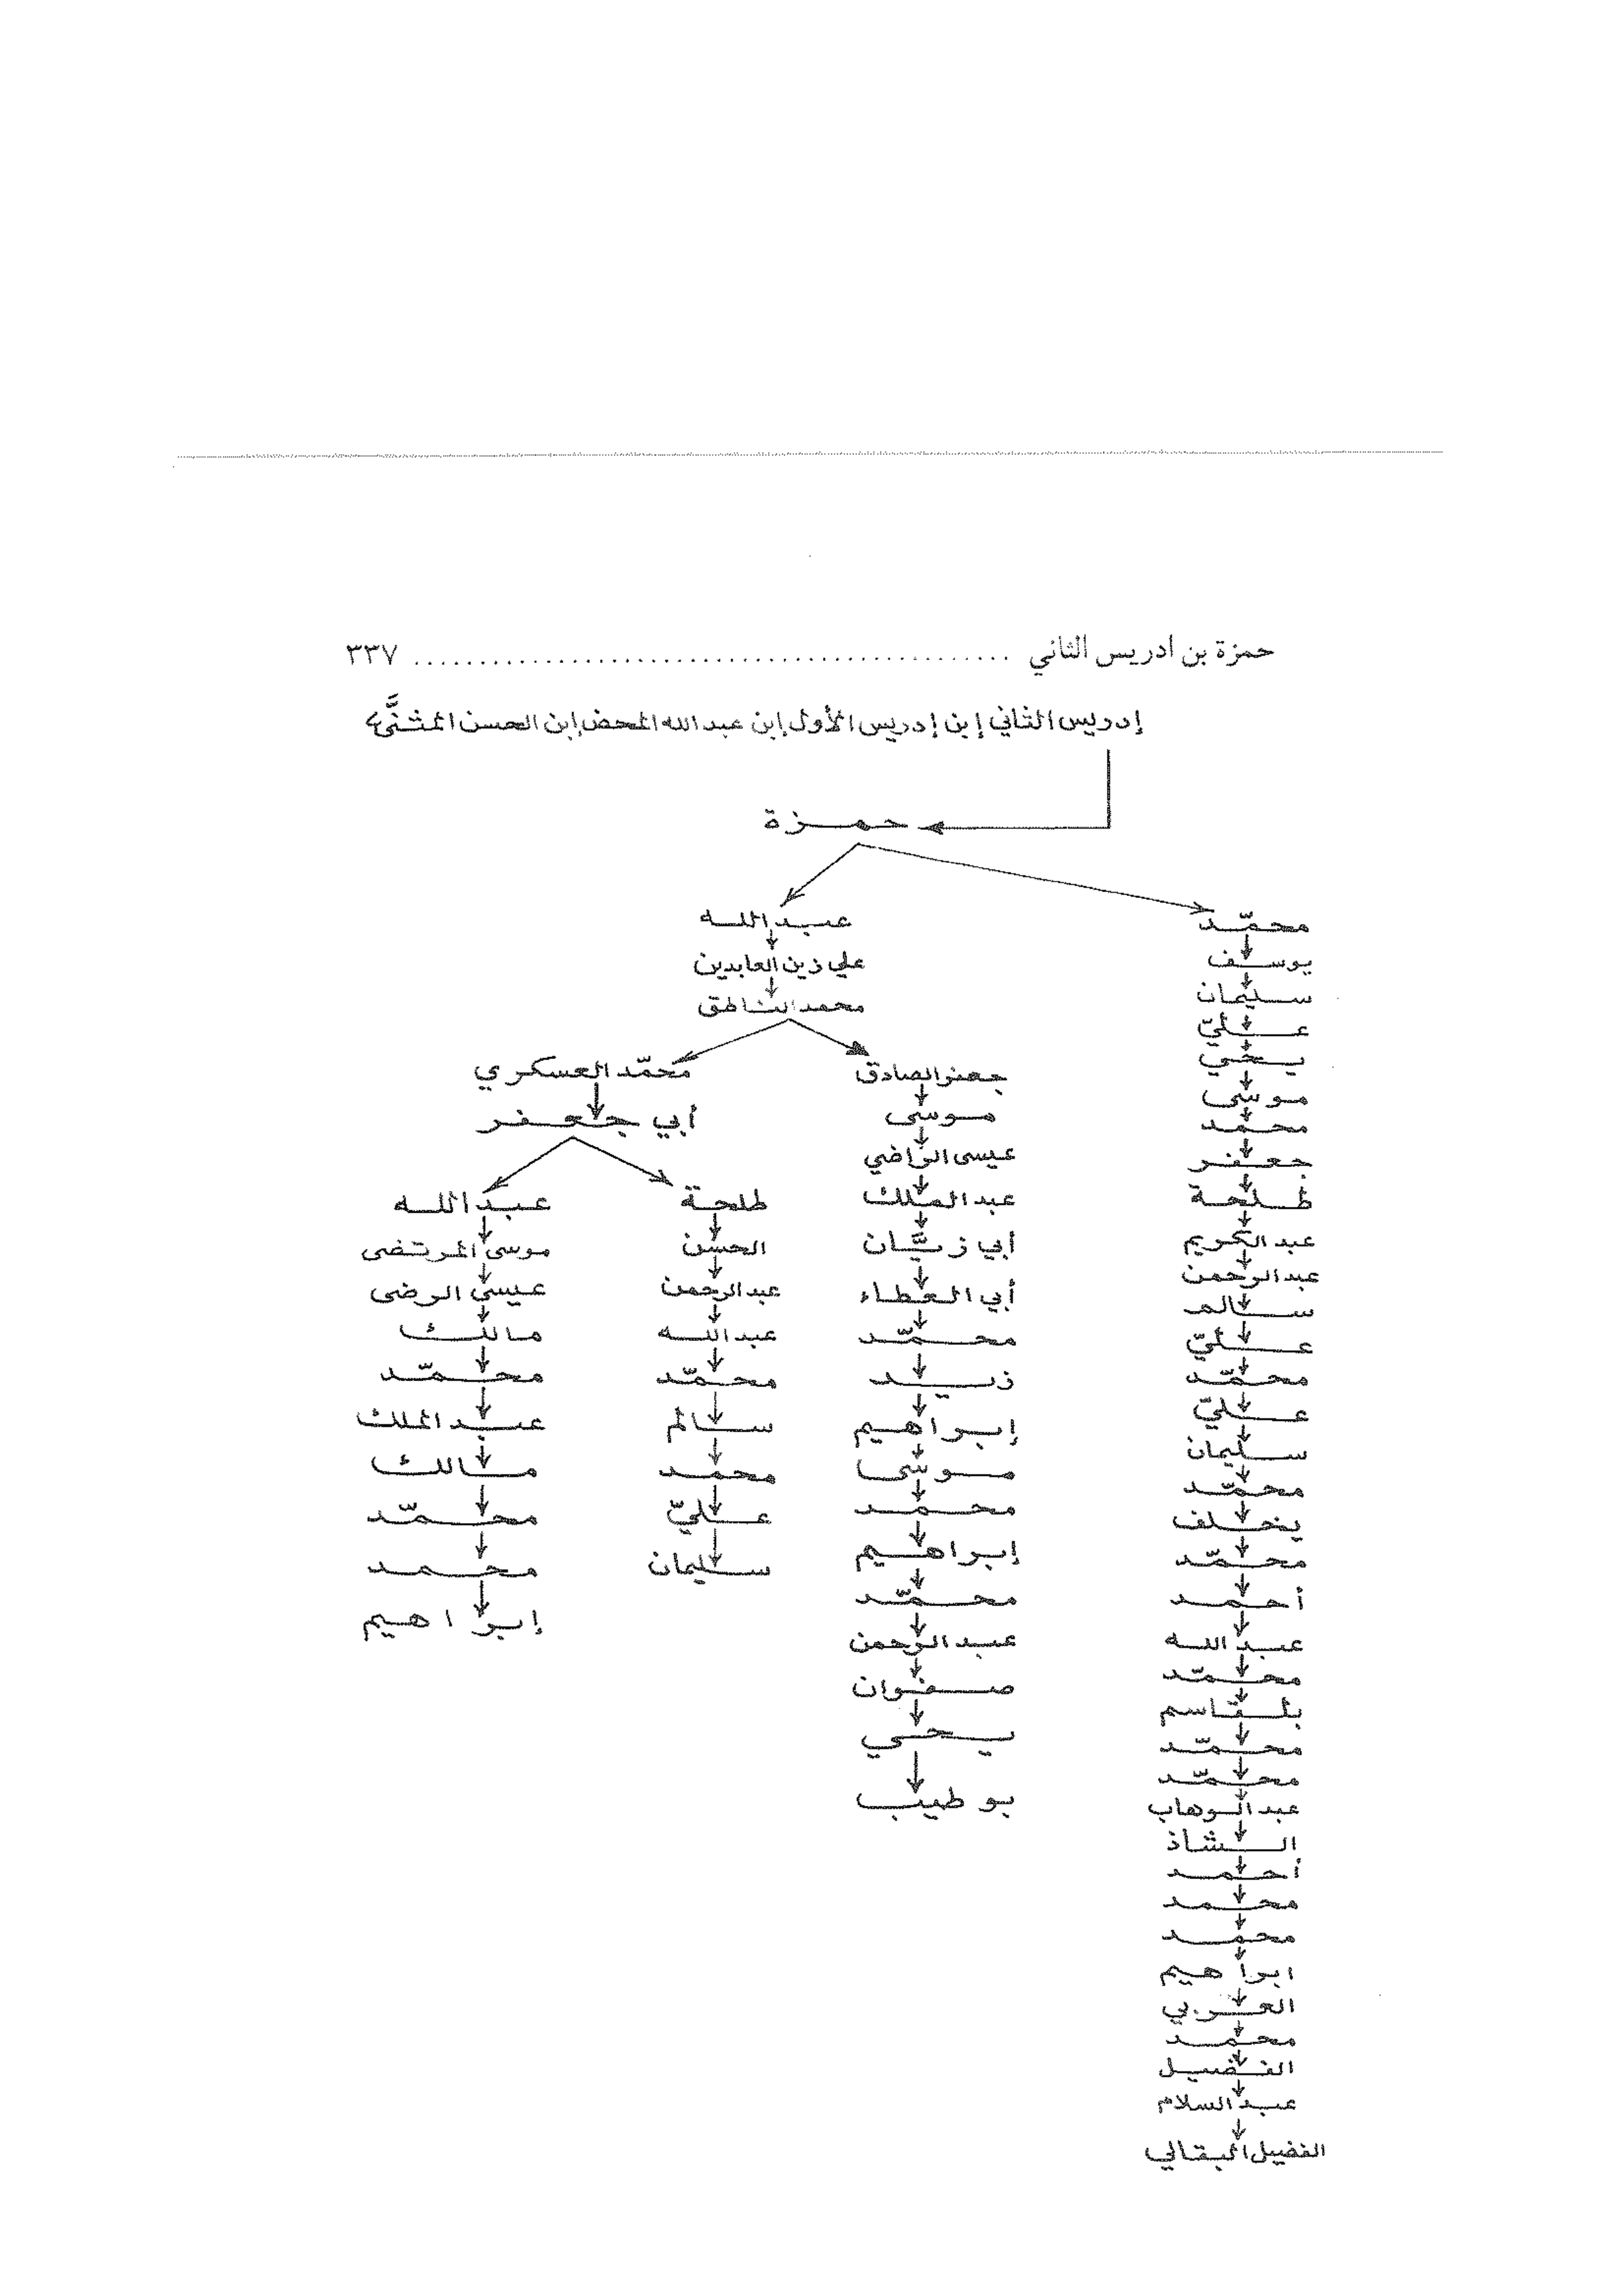 حمزة بن ادريس الثاني ............................................. ٣٣٧
إدريس الثاني إبن إدريس الأول إبن عبد الله المحض إبن الحسن المثنَّى
حمزة
محمّد
يوسف
سليمان
عليّ
يحي
موسى
محمد
جعفر
طلحة
عبد الكريم
عبد الرحمن
سالم
عليّ
محمّد
عليّ
سليمان
محمّد
يخلف
محمّد
أحمد
عبد الله
محمّد
بلقاسم
محمّد
محمّد
عبد الوهاب
الشاذ
أحمد
محمد
محمد
ابراهيم
العربي
محمد
الفضيل
عبد السلام
الفضيل البقالي
عبد الله
علي زين العابدين
محمد الناطق
جعفر الصادق
موسى
عيسى الراضي
عبد الملك
أبي زيَّان
أبي العطاء
محمّد
زيد
إبراهيم
موسى
محمد
إبراهيم
محمّد
عبد الرحمن
صفوان
يحي
بو طيب
محمّد العسكري
أبي جعفر
طلحة
الحسن
عبد الرحمن
عبد الله
محمّد
سالم
محمد
عليّ
سليمان
عبد الله
موسى المرتضى
عيسى الرضى
مالك
محمّد
عبد الملك
مالك
محمّد
محمد
إبراهيم